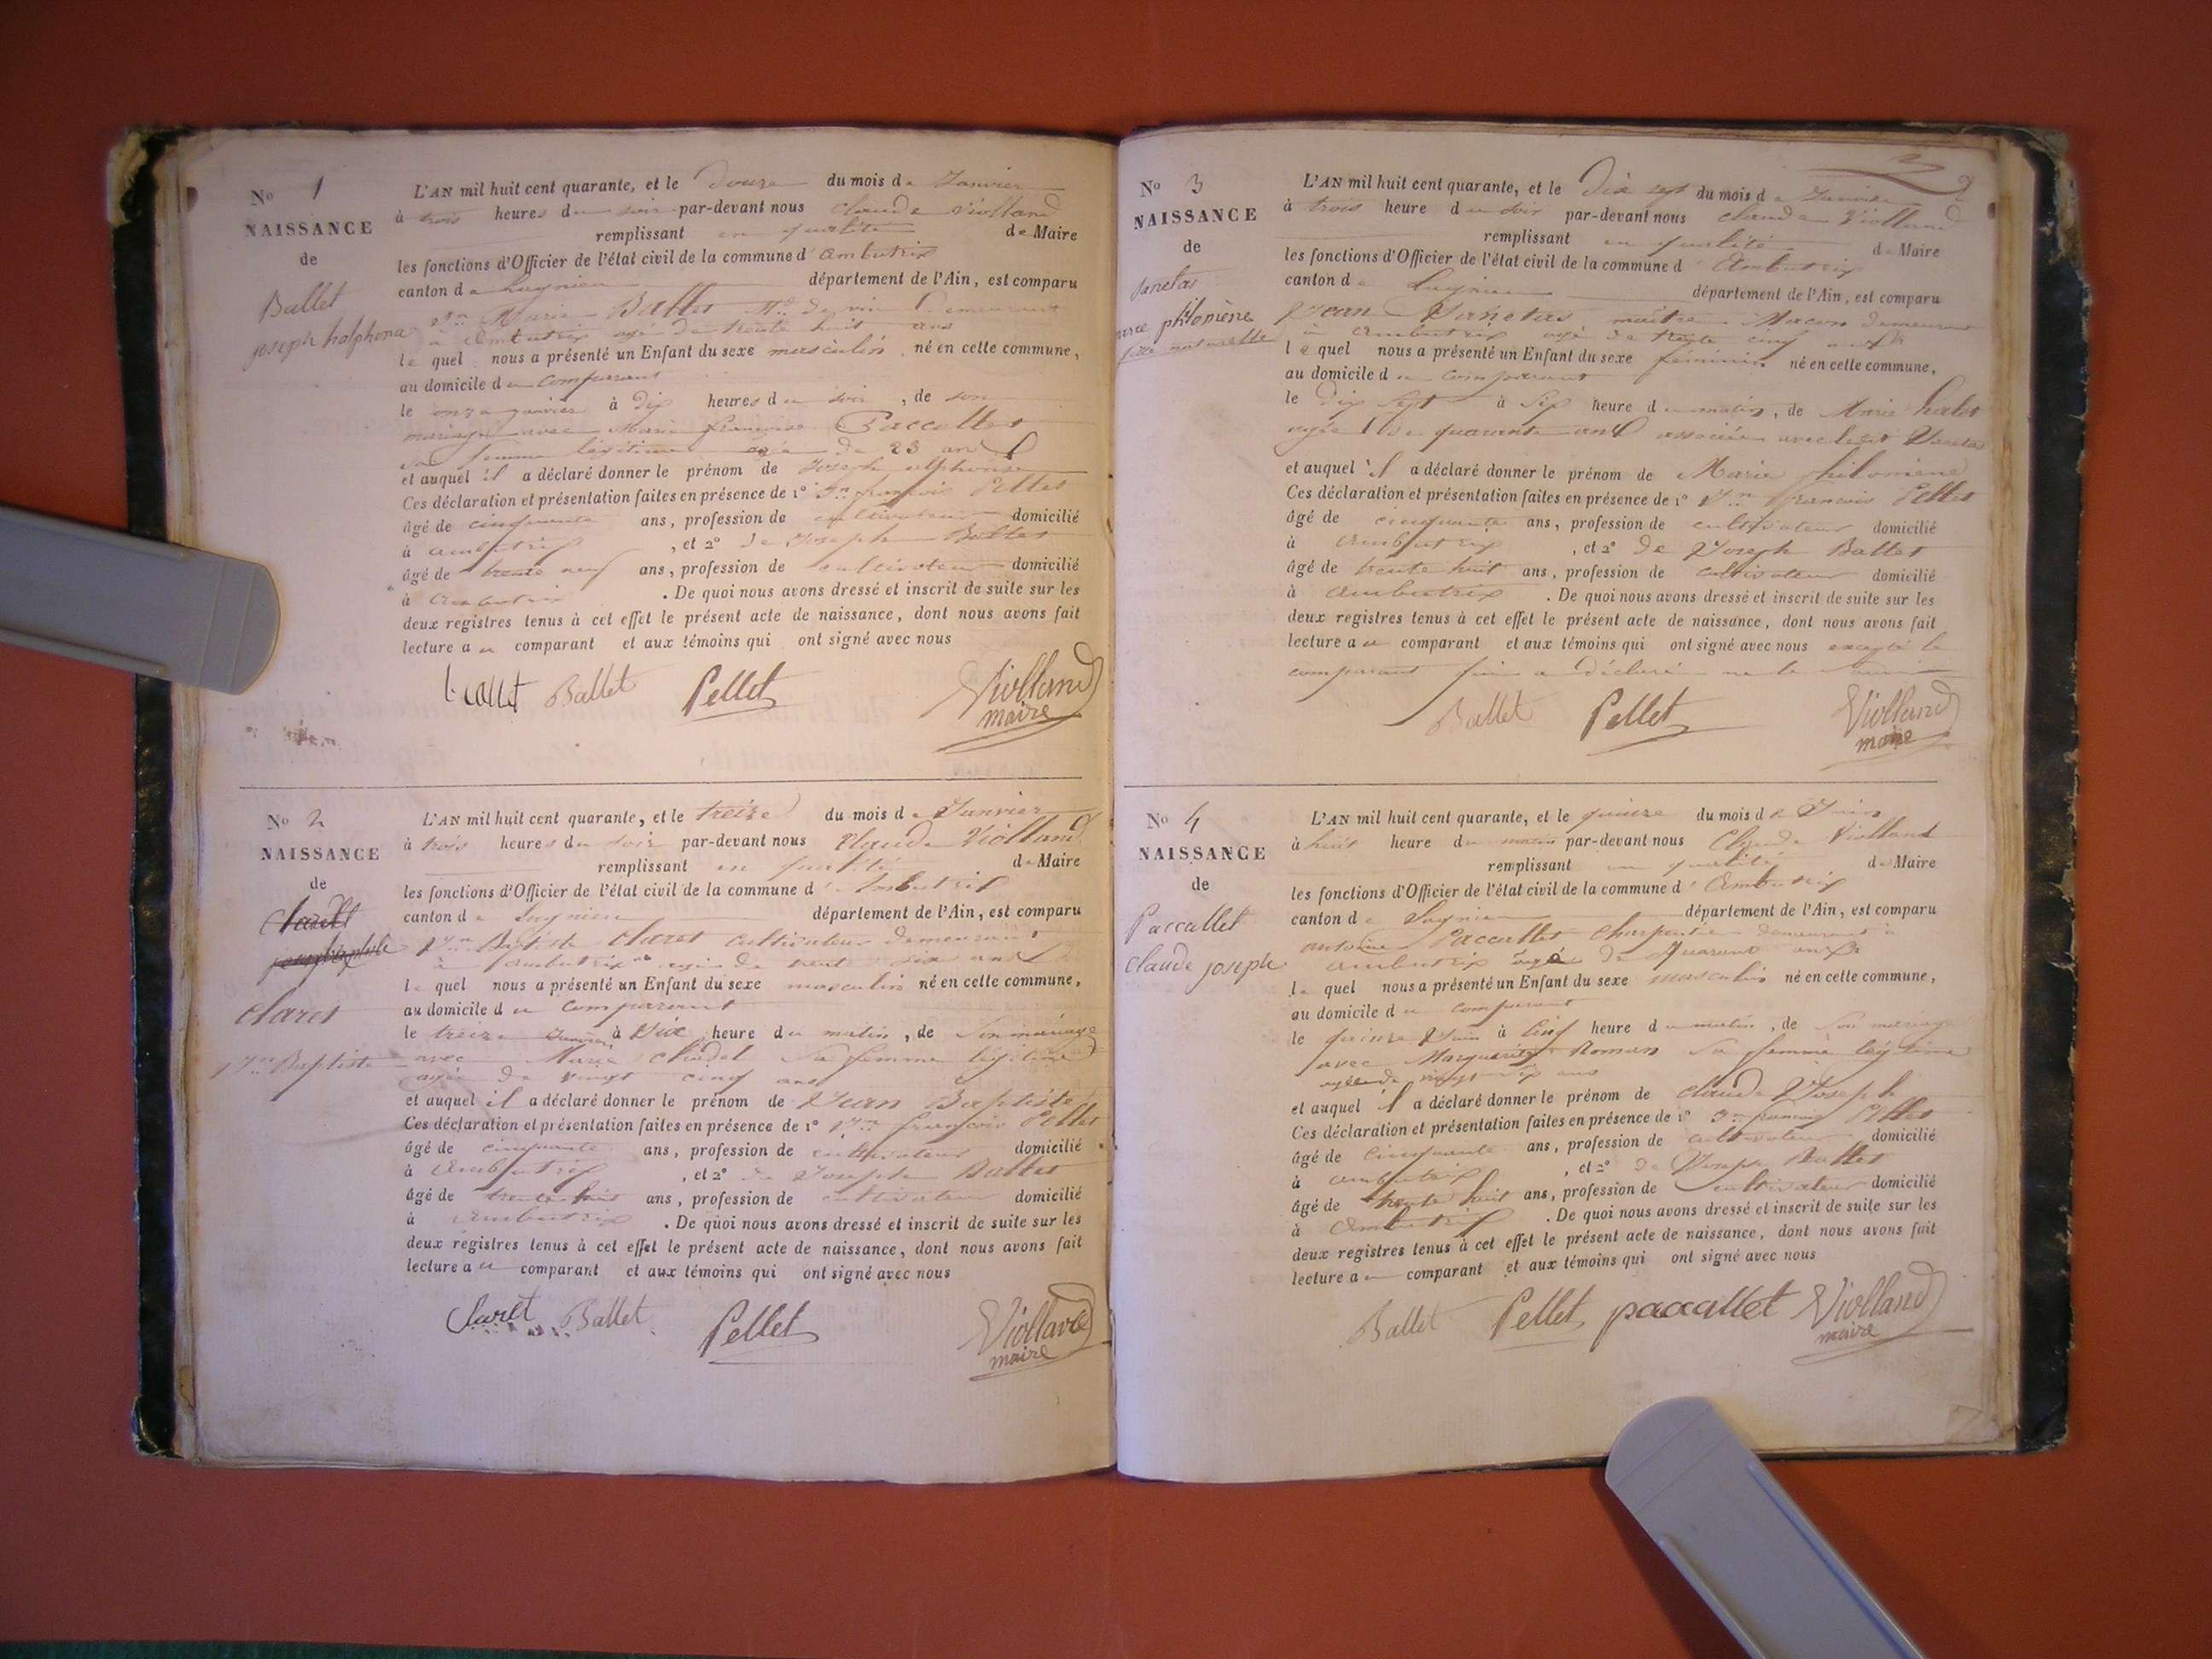 No 1
NAISSANCE
de
Ballet
joseph halphona
L'AN mil huit cent quarante, et le douze du mois de Janvier
à trois heures du soir par-devant nous Claude Violland
remplissant en qualité de Maire
les fonctions d'Officier de l'état civil de la commune d'Ambutrix
canton de Lagnieu département de l'Ain, est comparu
Jn Marie Ballet Md de vin demeurant
à Ambutrix agé de trente huit ans
le quel nous a présenté un Enfant du sexe masculin né en cette commune,
au domicile du Comparant
le onze janvier à dix heures du soir, de son
mariage avec Marie françoise Paccallet
sa femme légitime agée de 23 ans
et auquel il a déclaré donner le prénom de Joseph alphonse
Ces déclaration et présentation faites en présence de 1° Jn françois Pellet
âgé de cinquante ans, profession de cultivateur domicilié
à ambutrix, et 2° de Joseph Ballet
âgé de trente neuf ans, profession de cultivateur domicilié
à Ambutrix. De quoi nous avons dressé et inscrit de suite sur les
deux registres tenus à cet effet le présent acte de naissance, dont nous avons fait
lecture au comparant et aux témoins qui ont signé avec nous
Ballet Pellet Violland
maire
No 2
NAISSANCE
de
Claret
Jn Baptiste
L'AN mil huit cent quarante, et le treize du mois de Janvier
à trois heures du soir par-devant nous Claude Violland
remplissant en qualité de Maire
les fonctions d'Officier de l'état civil de la commune d'Ambutrix
canton de Lagnieu département de l'Ain, est comparu
Jn Baptiste Claret Cultivateur demeurant
à Ambutrix agé de trente six ans
le quel nous a présenté un Enfant du sexe masculin né en cette commune,
au domicile du Comparant
le treize Janvier à Dix heure du matin, de Son mariage
avec Marie Cludel sa femme légitime
agée de vingt cinq ans
et auquel il a déclaré donner le prénom de Jean Baptiste
Ces déclaration et présentation faites en présence de 1° Jn françois Pellet
âgé de cinquante ans, profession de cultivateur domicilié
à Ambutrix, et 2° de Joseph Ballet
âgé de trente huit ans, profession de cultivateur domicilié
à Ambutrix. De quoi nous avons dressé et inscrit de suite sur les
deux registres tenus à cet effet le présent acte de naissance, dont nous avons fait
lecture au comparant et aux témoins qui ont signé avec nous
Claret Ballet Pellet Violland
maire
2
No 3
NAISSANCE
de
Janetas
marie philomène
fille naturelle
L'AN mil huit cent quarante, et le Dix sept du mois de Janvier
à trois heure du soir par-devant nous Claude Violland
remplissant en qualité de Maire
les fonctions d'Officier de l'état civil de la commune d'Ambutrix
canton de Lagnieu département de l'Ain, est comparu
Jean Janetas maître Macon demeurant
à Ambutrix agé de trente cinq ans
le quel nous a présenté un Enfant du sexe féminin né en cette commune,
au domicile du comparant
le Dix Sept à Six heure du matin, de Marie
agée de quarante ans associée avec ledit Janetas
et auquel il a déclaré donner le prénom de Marie philomène
Ces déclaration et présentation faites en présence de 1° Jn françois Pellet
âgé de cinquante ans, profession de cultivateur domicilié
à Ambutrix, et 2° de Joseph Ballet
âgé de trente huit ans, profession de cultivateur domicilié
à Ambutrix. De quoi nous avons dressé et inscrit de suite sur les
deux registres tenus à cet effet le présent acte de naissance, dont nous avons fait
lecture au comparant et aux témoins qui ont signé avec nous excepté le
comparant qui a déclaré ne le savoir
Ballet Pellet Violland
maire
No 4
NAISSANCE
de
Paccallet
Claude joseph
L'AN mil huit cent quarante, et le quinze du mois de Juin
à huit heure du matin par-devant nous Claude Violland
remplissant en qualité de Maire
les fonctions d'Officier de l'état civil de la commune d'Ambutrix
canton de Lagnieu département de l'Ain, est comparu
antoine Paccallet Charpentier demeurant à
ambutrix agé de Quarante ans
le quel nous a présenté un Enfant du sexe masculin né en cette commune,
au domicile du comparant
le quinze Juin à Cinq heure du matin, de Son mariage
avec Marguerite Roman Sa femme légitime
agée de vingt six ans
et auquel il a déclaré donner le prénom de Claude Joseph
Ces déclaration et présentation faites en présence de 1° Jn françois Pellet
âgé de cinquante ans, profession de cultivateur domicilié
à ambutrix, et 2° de Joseph Ballet
âgé de trente huit ans, profession de cultivateur domicilié
à Ambutrix. De quoi nous avons dressé et inscrit de suite sur les
deux registres tenus à cet effet le présent acte de naissance, dont nous avons fait
lecture au comparant et aux témoins qui ont signé avec nous
Ballet Pellet paccallet Violland
maire